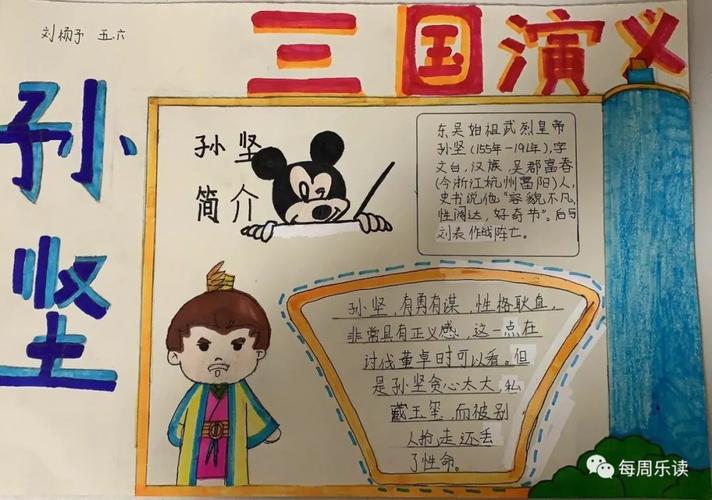 刘杨予 五.六
三国演义
孙坚
孙坚
简介
东吴始祖武烈皇帝
孙坚(155年-191年),字
文台,汉族,吴郡富春
(今浙江杭州富阳)人,
史书说他“容貌不凡,
性阔达,好奇节”。后与
刘表作战阵亡。
孙坚,有勇有谋,性格耿直,
非常具有正义感,这一点在
讨伐董卓时可以看。但
是孙坚贪心太大,私
藏玉玺,而被别
人抢走还丢
了性命。
每周乐读